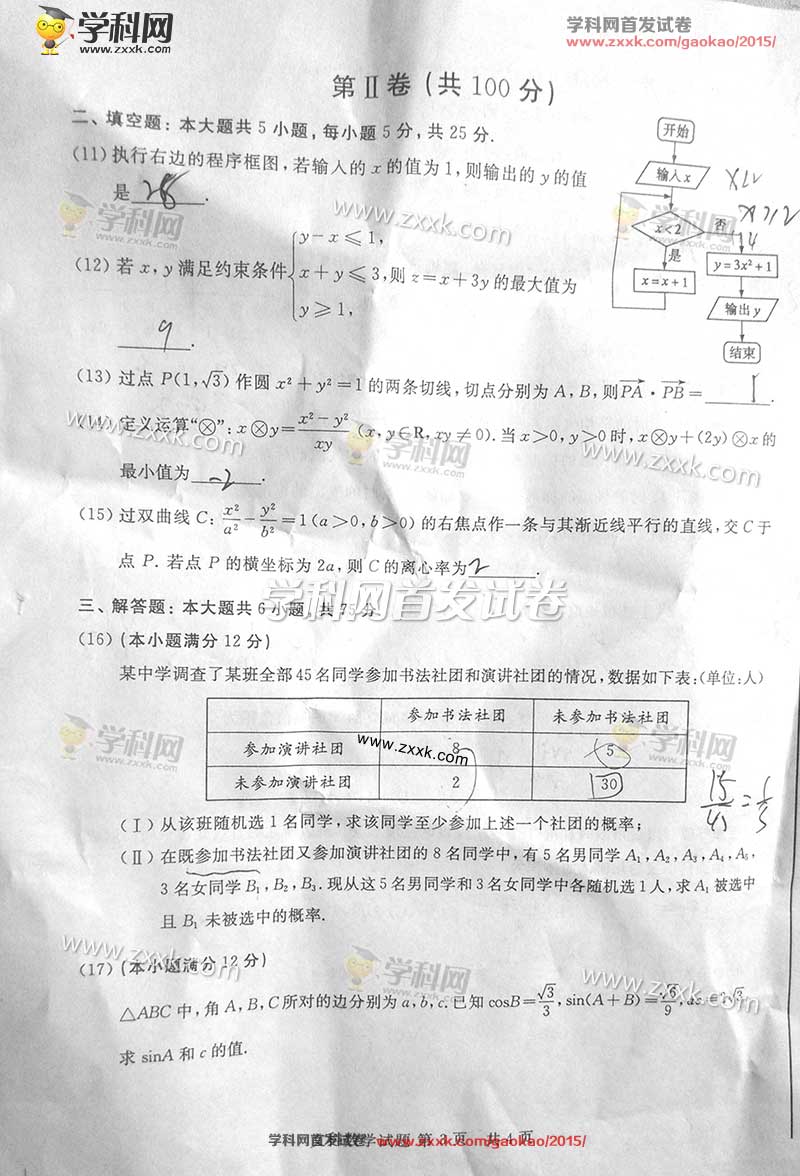 学科网
www.zxxk.com
学科网首发试卷
www.zxxk.com/gaokao/2015/
第Ⅱ卷(共100分)
二、填空题：本大题共5小题，每小题5分，共25分.
(11)执行右边的程序框图，若输入的x的值为1,则输出的y的值
是 28 .
开始
输入x
x<2
否
是
x=x+1
y=3x²+1
输出y
结束
(12)若x,y满足约束条件{y-x≤1,
x+y≤3,则z=x+3y的最大值为
y≥1,
9 .
(13)过点P(1,√3)作圆x²+y²=1的两条切线,切点分别为A,B,则PA·PB= .
定义运算“⊗”:x⊗y=(x²-y²)/xy (x,y∈R,xy≠0).当x>0,y>0时,x⊗y+(2y)⊗x的
最小值为 .
(15)过双曲线C: x²/a²-y²/b²=1(a>0,b>0)的右焦点作一条与其渐近线平行的直线,交C于
点P.若点P的横坐标为2a,则C的离心率为 2 .
学科网首发试卷
三、解答题：本大题共6小题,共75分
(16)(本小题满分12分)
某中学调查了某班全部45名同学参加书法社团和演讲社团的情况,数据如下表:(单位:人)
参加书法社团 未参加书法社团
参加演讲社团 8 5
未参加演讲社团 2 30
15/45=1/3
(Ⅰ)从该班随机选1名同学,求该同学至少参加上述一个社团的概率;
(Ⅱ)在既参加书法社团又参加演讲社团的8名同学中,有5名男同学A₁,A₂,A₃,A₄,A₅,
3名女同学B₁,B₂,B₃.现从这5名男同学和3名女同学中各随机选1人,求A₁被选中
且B₁未被选中的概率.
(17)(本小题满分12分)
△ABC中,角A,B,C所对的边分别为a,b,c.已知cosB=√3/3,sin(A+B)=√6/9,
求sinA和c的值.
学科网首发试卷 www.zxxk.com/gaokao/2015/
学试题 第3页 共4页